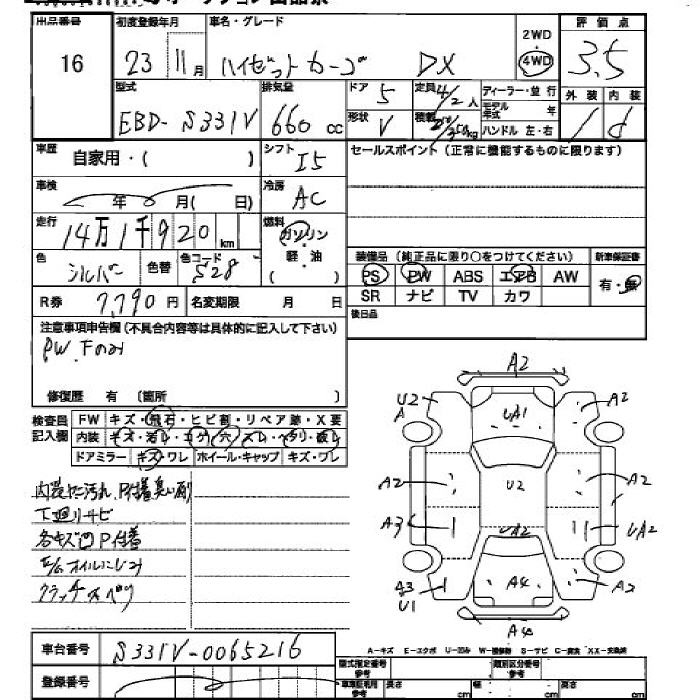 出品番号 初度登録年月 車名・グレード 2WD 評価点
16 23年 11月 ハイゼット カーゴ DX 4WD 3.5
型式 排気量 ドア 5 定員 4/2人 ディーラー・並行 外装 内装
EBD-S331V 660cc 形状 V 積載 250/350kg モデル年式 年 ハンドル 左・右 d
車歴 自家用・( ) シフト I5 セールスポイント (正常に機能するものに限ります)
車検 年 月( 日) 冷房 AC
走行 14万1千920km 燃料 ガソリン
色 シルバー 色替 色コード S28 軽・油 装備品 (純正品に限り○をつけてください) 新車保証書
PS PW ABS エアB AW 有・無
R券 7,790円 名変期限 月 日 SR ナビ TV カワ
注意事項申告欄 (不具合内容等は具体的に記入して下さい) 後日品
PW.Fのみ
修復歴 有 (箇所 )
検査員 FW キズ・飛石・ヒビ割・リペア跡・X要
記入欄 内装 キズ・汚れ・コゲ・穴・スレ・ヘタリ・破レ
ドアミラー キズ・ワレ ホイール・キャップ キズ・ワレ
A2
U2 A UA1 A2
A2 U2 A2
A3 UA2 UA2
A3 U1 A4 A2
A4
下廻りサビ
各キズ凹P付着
クラッチスベリ
車台番号 S331V-0065216
A-キズ E-エクボ U-凹み W-補修跡 S-サビ C-腐食 XX-交換済
登録番号 型式指定番号 参考 類別区分番号 参考
長さ cm 幅 cm 高さ cm